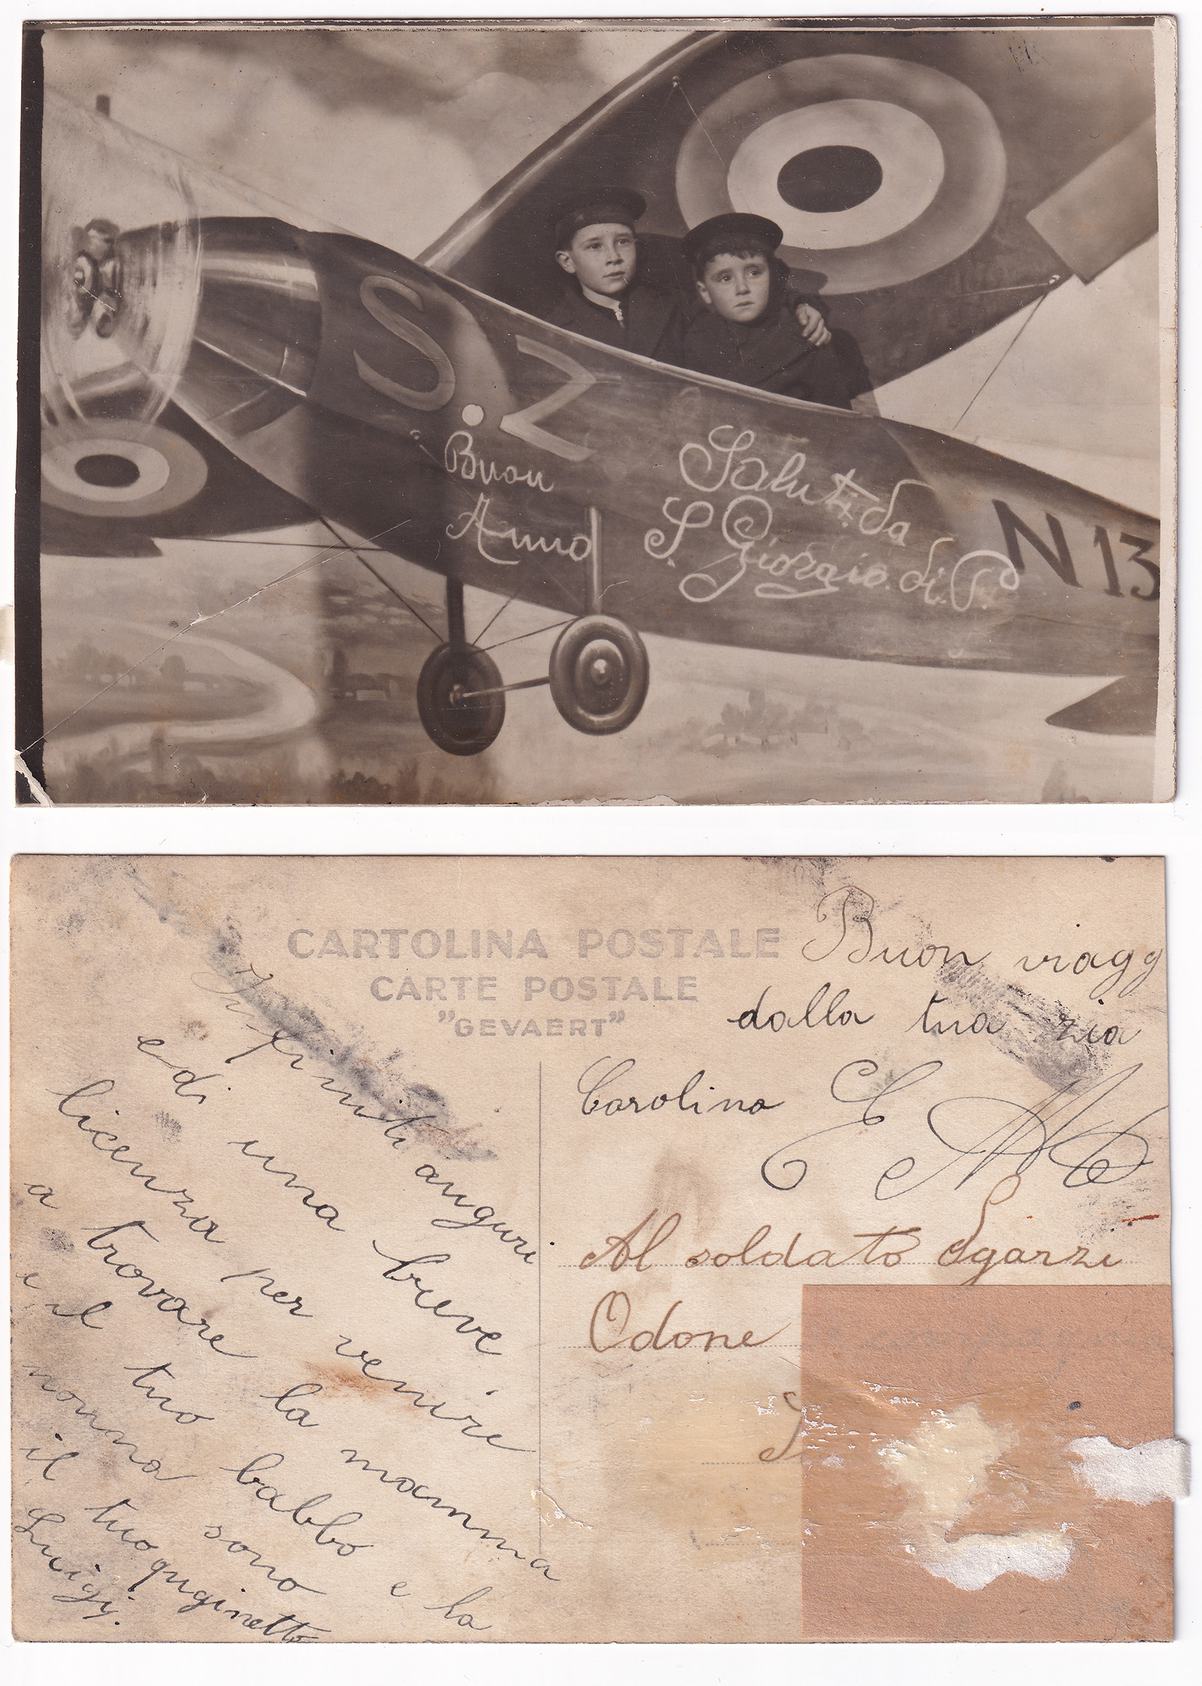 S.Z
Buon
Anno
Saluti da
S. Giorgio. di. P.
N 13
CARTOLINA POSTALE
CARTE POSTALE
"GEVAERT"
Buon viagg
dalla tua zia
Carolina
Al soldato Sgarzi
Odone
Infiniti auguri
e di una breve
licenza per venire
a trovare la mamma
e il tuo babbo e la
nonna sono
il tuo quginetto
Luigi.